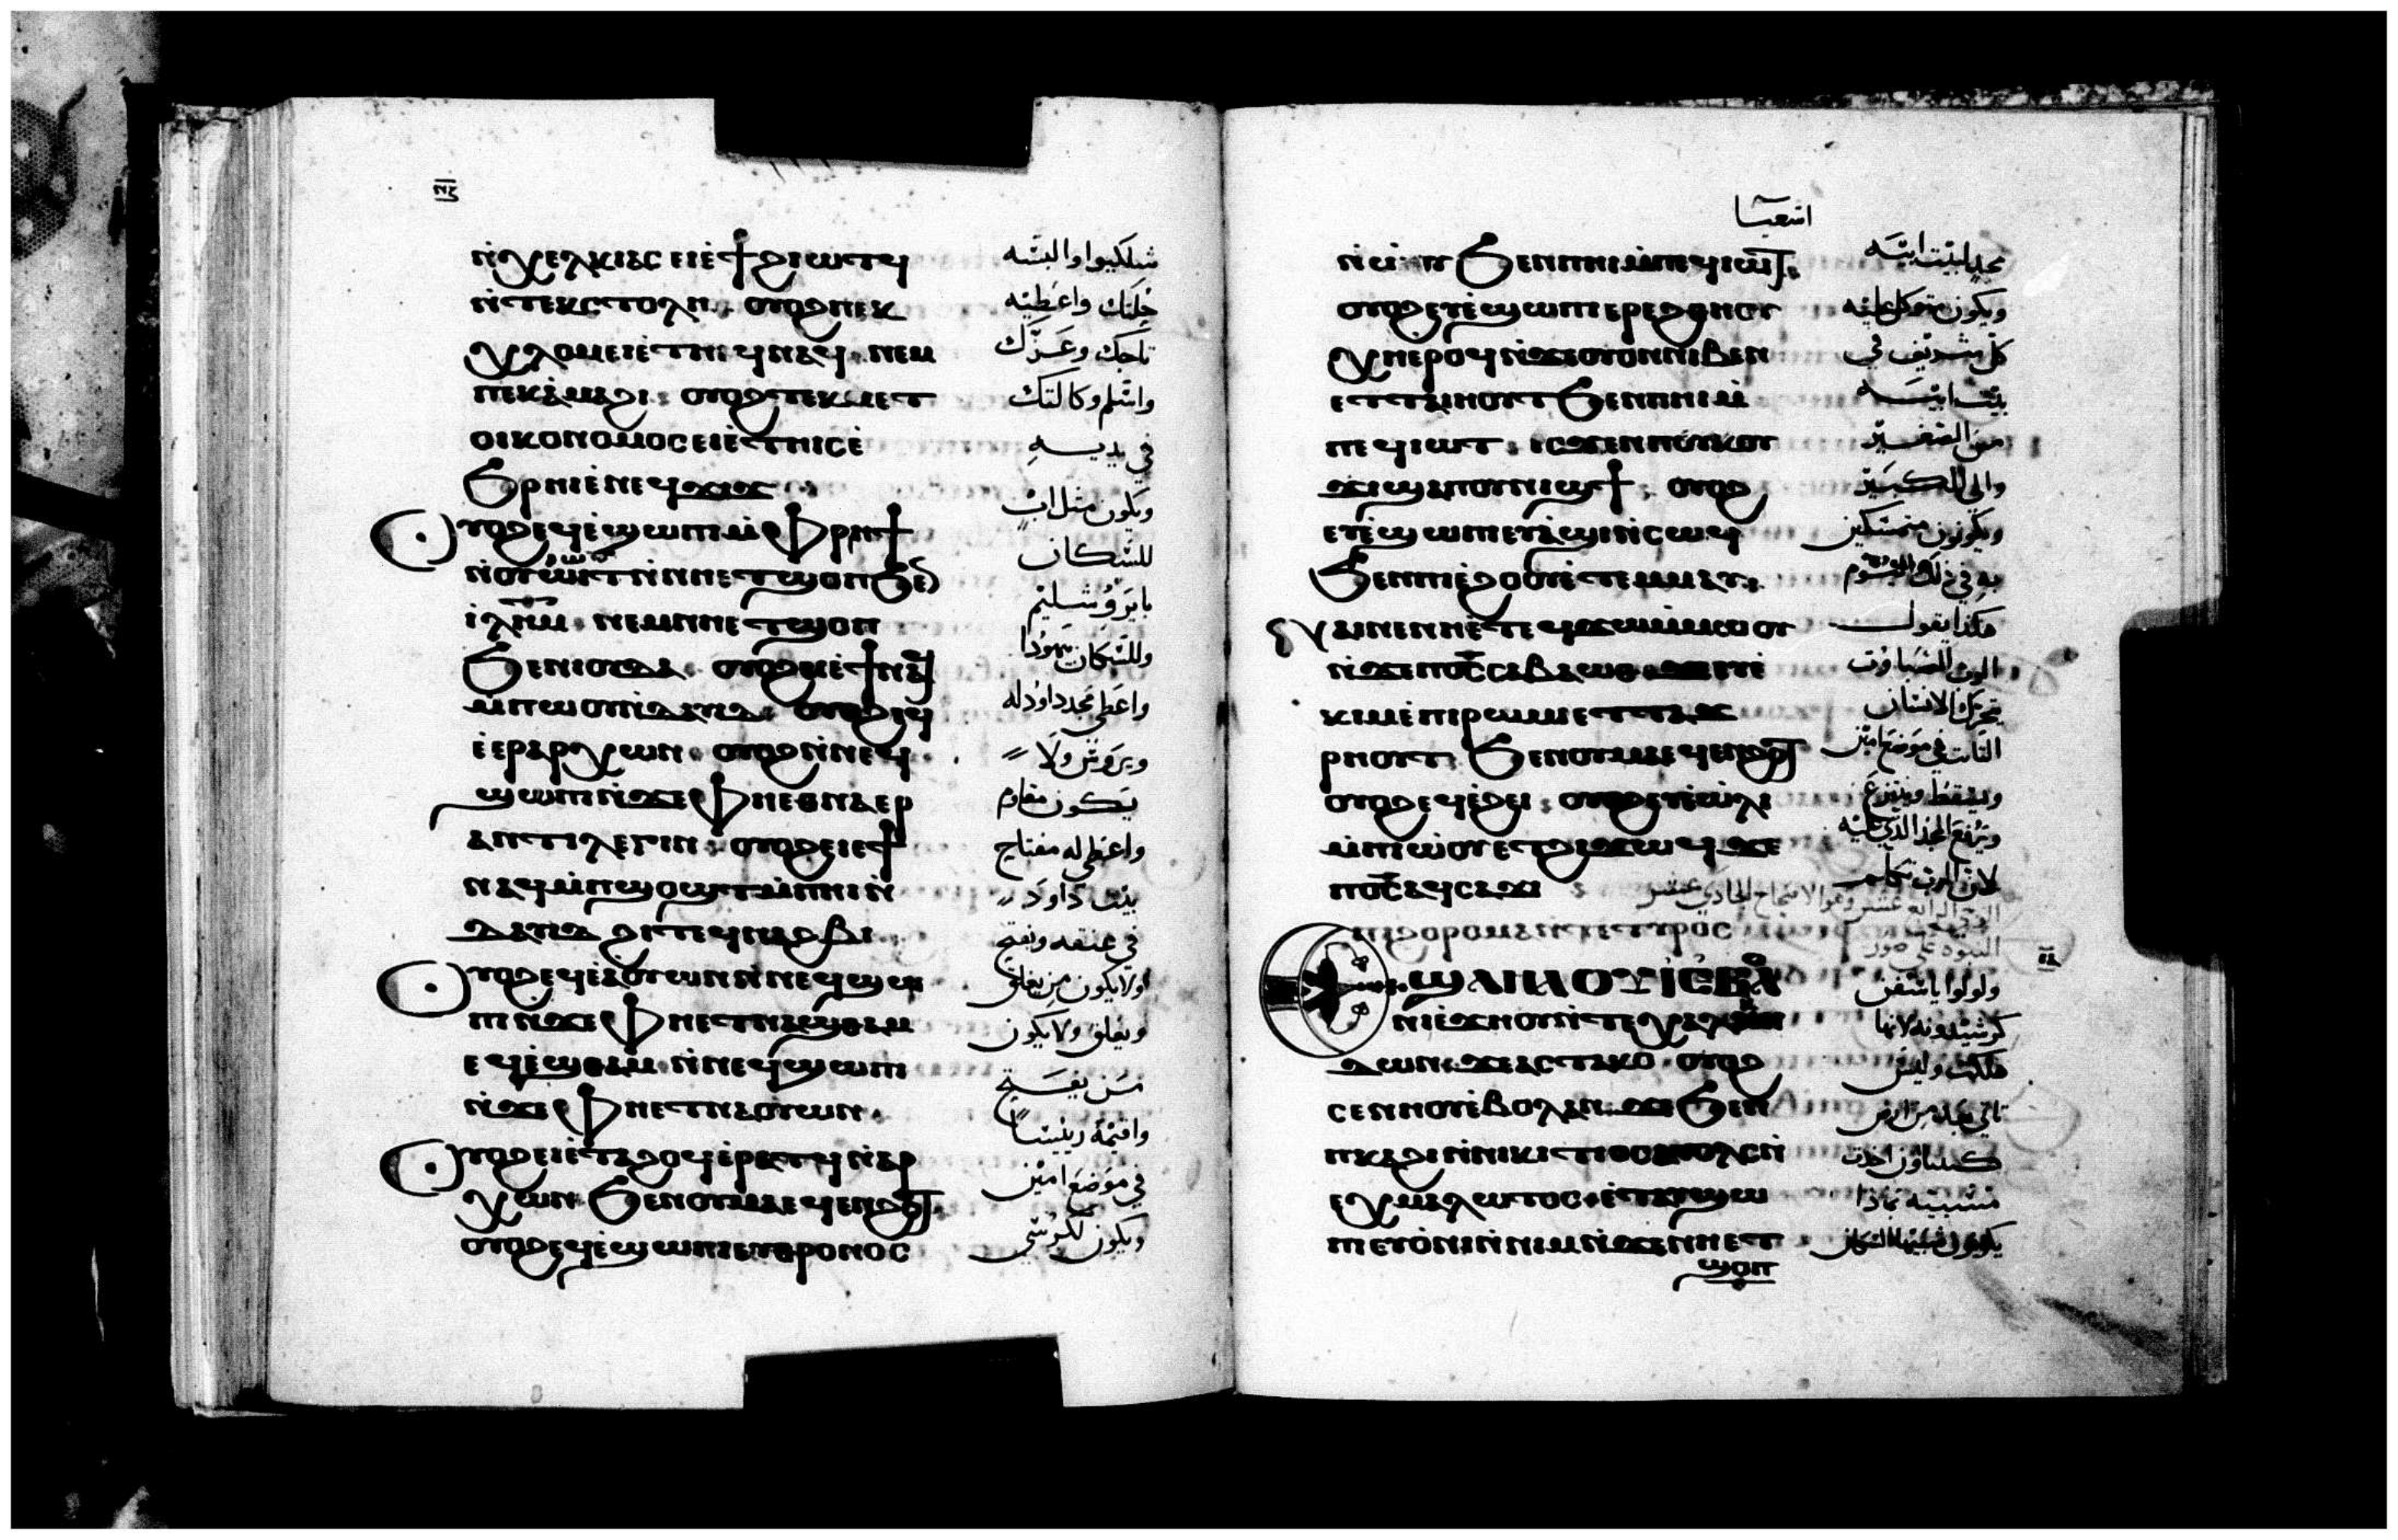 ⲛ̅ⲍ̅
ⲛ̀ⲭⲉⲗⲕⲓⲁⲥ ⲉⲓⲉ̀ϯϩⲓⲱⲧϥ
ⲛ̀ⲧⲉⲕⲥⲧⲟⲗⲏ ⲟⲩⲟϩ ⲡⲉⲕ
ⲭⲗⲟⲙ ⲉⲓⲉ̀ⲧⲏⲓϥ ⲛⲁϥ ⲛⲉⲙ
ⲡⲉⲕⲁ̀ⲙⲁϩⲓ ⲟⲩⲟϩ ⲧⲉⲕⲙⲉⲧ
ⲟⲓⲕⲟⲛⲟⲙⲟⲥ ⲉⲓⲉ̀ⲧⲏⲓⲥ ⲉ̀
ϧⲣⲏⲓ ⲉ̀ⲛⲉϥϫⲓϫ
ⲟⲩⲟϩ ⲉϥⲉ̀ϣⲱⲡⲓ ⲙ̀ⲫⲣⲏϯ
ⲛ̀ⲟⲩⲓⲱⲧ ⲛ̀ⲛⲏⲉⲧϣⲟⲡ ϧⲉⲛ
ⲓⲗ̅ⲏ̅ⲙ̅ ⲛⲉⲙ ⲛⲏⲉⲧϣⲟⲡ
ϧⲉⲛ ⲓⲟⲩⲇⲁ ⲟⲩⲟϩ ⲉⲓⲉ̀ϯ ⲛⲁϥ
ⲙ̀ⲡⲱⲟⲩ ⲛ̀ⲇⲁⲩⲓⲇ ⲟⲩⲟϩ ⲉϥ
ⲉ̀ⲉⲣⲁⲣⲭⲱⲛ ⲟⲩⲟϩ ⲛ̀ⲛⲉϥ
ϣⲱⲡⲓ ⲛ̀ϫⲉ ⲫⲏⲉⲑⲛⲁⲉⲣ
ⲁⲛⲧⲓⲗⲉⲅⲓⲛ ⲟⲩⲟϩ ⲉⲓⲉ̀ϯ
ⲛⲁϥ ⲙ̀ⲡϣⲟϣⲧ ⲙ̀ⲡⲏⲓ ⲛ̀
ⲇⲁⲩⲓⲇ ϩⲓ ⲧⲉϥⲛⲁϩⲃⲓ
ⲟⲩⲟϩ ⲉϥⲉ̀ⲁ̀ⲟⲩⲱⲛ ⲛ̀ⲛⲉϥϣⲱ
ⲡⲓ ⲛ̀ϫⲉ ⲫⲏⲉⲧⲛⲁϣⲑⲁⲙ
ⲉϥⲉ̀ϣⲑⲁⲙ ⲛ̀ⲛⲉϥϣⲱⲡⲓ
ⲛ̀ϫⲉ ⲫⲏⲉⲧⲛⲁⲟⲩⲱⲛ
ⲟⲩⲟϩ ⲉⲓⲉ̀ⲧⲁϩⲟϥ ⲉ̀ⲣⲁⲧϥ ⲛ̀ⲁⲣ
ⲭⲱⲛ ϧⲉⲛ ⲟⲩⲙⲁ ⲉϥⲉⲛϩⲟⲧ
ⲟⲩⲟϩ ⲉϥⲉ̀ϣⲱⲡⲓ ⲉⲩⲑⲣⲟⲛⲟⲥ
شلكيوا والبسه
حلتك واعطيه
تاجك وعزك
واسلم وكالتك
في يديه
ويكون مثل اب
للسكان
بايروشليم
وللسكان بيهودا
واعطي مجد داود له
ويروس ولا
يكون مقاوم
واعطي له مفتاح
بيت داود
في عنقه ويفتح
ولا يكون من يغلق
ويغلق ولا يكون
من يفتح
واقيمه رييسا
في موضع امين
ويكون لكرسي
اشعيا
ⲛ̀ⲱ̀ⲟⲩ ϧⲉⲛ ⲡⲏⲓ ⲙ̀ⲡⲉϥⲓⲱⲧ
ⲟⲩⲟϩ ⲉⲩⲉ̀ϣⲱⲡⲓ ⲉⲣⲉϩⲑⲏⲟⲩ
ⲭⲏ ⲉⲣⲟϥ ⲛ̀ϫⲉ ⲟⲩⲟⲛ ⲛⲓⲃⲉⲛ
ⲉⲧⲧⲁⲓⲏⲟⲩⲧ ϧⲉⲛ ⲡⲏⲓ ⲙ̀
ⲡⲉϥⲓⲱⲧ ⲓⲥϫⲉⲛ ⲡⲓⲕⲟⲩ
ϫⲓ ϣⲁ ⲡⲓⲛⲓϣϯ ⲟⲩⲟϩ
ⲉⲩⲉ̀ϣⲱⲡⲓ ⲉⲩⲁ̀ϣⲓ ⲛ̀ⲥⲱϥ
ϧⲉⲛ ⲡⲓⲉ̀ϩⲟⲟⲩ ⲉ̀ⲧⲉⲙⲙⲁⲩ
ⲛⲁⲓ ⲛⲉ ⲛⲏⲉⲧⲉϥϫⲱ ⲙ̀ⲙⲱⲟⲩ
ⲛ̀ϫⲉ ⲡⲟ̅ⲥ̅ ⲥⲁⲃⲁⲱⲑ ϫⲉ ⲉϥⲉ̀
ⲕⲓⲙ ⲉ̀ⲡⲓⲣⲱⲙⲓ ⲉⲧⲧⲁϫ
ⲣⲏⲟⲩⲧ ϧⲉⲛ ⲟⲩⲙⲁ ⲉϥⲉⲛϩⲟⲧ
ⲟⲩⲟϩ ⲉϥⲉ̀ϩⲉⲓ ⲟⲩⲟϩ ⲉⲩⲉ̀ⲱⲗⲓ
ⲙ̀ⲡⲓⲱ̀ⲟⲩ ⲉⲧϩⲓϫⲱϥ ϫⲉ
ⲡⲟ̅ⲥ̅ ⲁϥⲥⲁϫⲓ
ⲡⲓϩⲟⲣⲟⲙⲁ ⲛ̀ⲧⲉ ⲧⲩⲣⲟⲥ
ⲱϣ ⲛⲓⲉ̀ϫⲏⲟⲩ ⲛ̀ⲧⲉ ⲭⲁⲗⲭⲏ
ⲇⲱⲛ ϫⲉ ⲁⲥⲧⲁⲕⲟ ⲟⲩⲟϩ
ⲥⲉⲛⲏⲟⲩ ⲉ̀ⲃⲟⲗ ⲁⲛ ϫⲉ ϧⲉⲛ
ⲡⲕⲁϩⲓ ⲛ̀ⲛⲓⲕⲓⲧⲓⲟⲥ ⲁⲩⲟⲗⲥ ⲛ̀
ⲉⲭⲙⲁⲗⲱⲧⲟⲥ ⲉ̀ⲧⲁⲩϣⲱ
ⲡⲓ ⲉⲩⲟ̀ⲛⲓ ⲛ̀ⲛⲓⲙ ⲛ̀ϫⲉ ⲛⲏⲉⲧ
ϣⲟⲡ
مجد لبيت ابيه
ويكون متوكل عليه
كل شريف في
بيت ابيه
من الصغير
والي الكبير
ويكونون متمسكين
به في ذلك اليوم
هكذا يقول
الرب الصباوت
يتحرك الانسان
الثابت في موضع امين
ويسقط وينزع
ويرفع المجد الذي عليه
لان الرب تكلم
النبوه علي صور
ولولوا يا سفن
لانها
هلكت وليس
تاتي من ارض
مسبيه